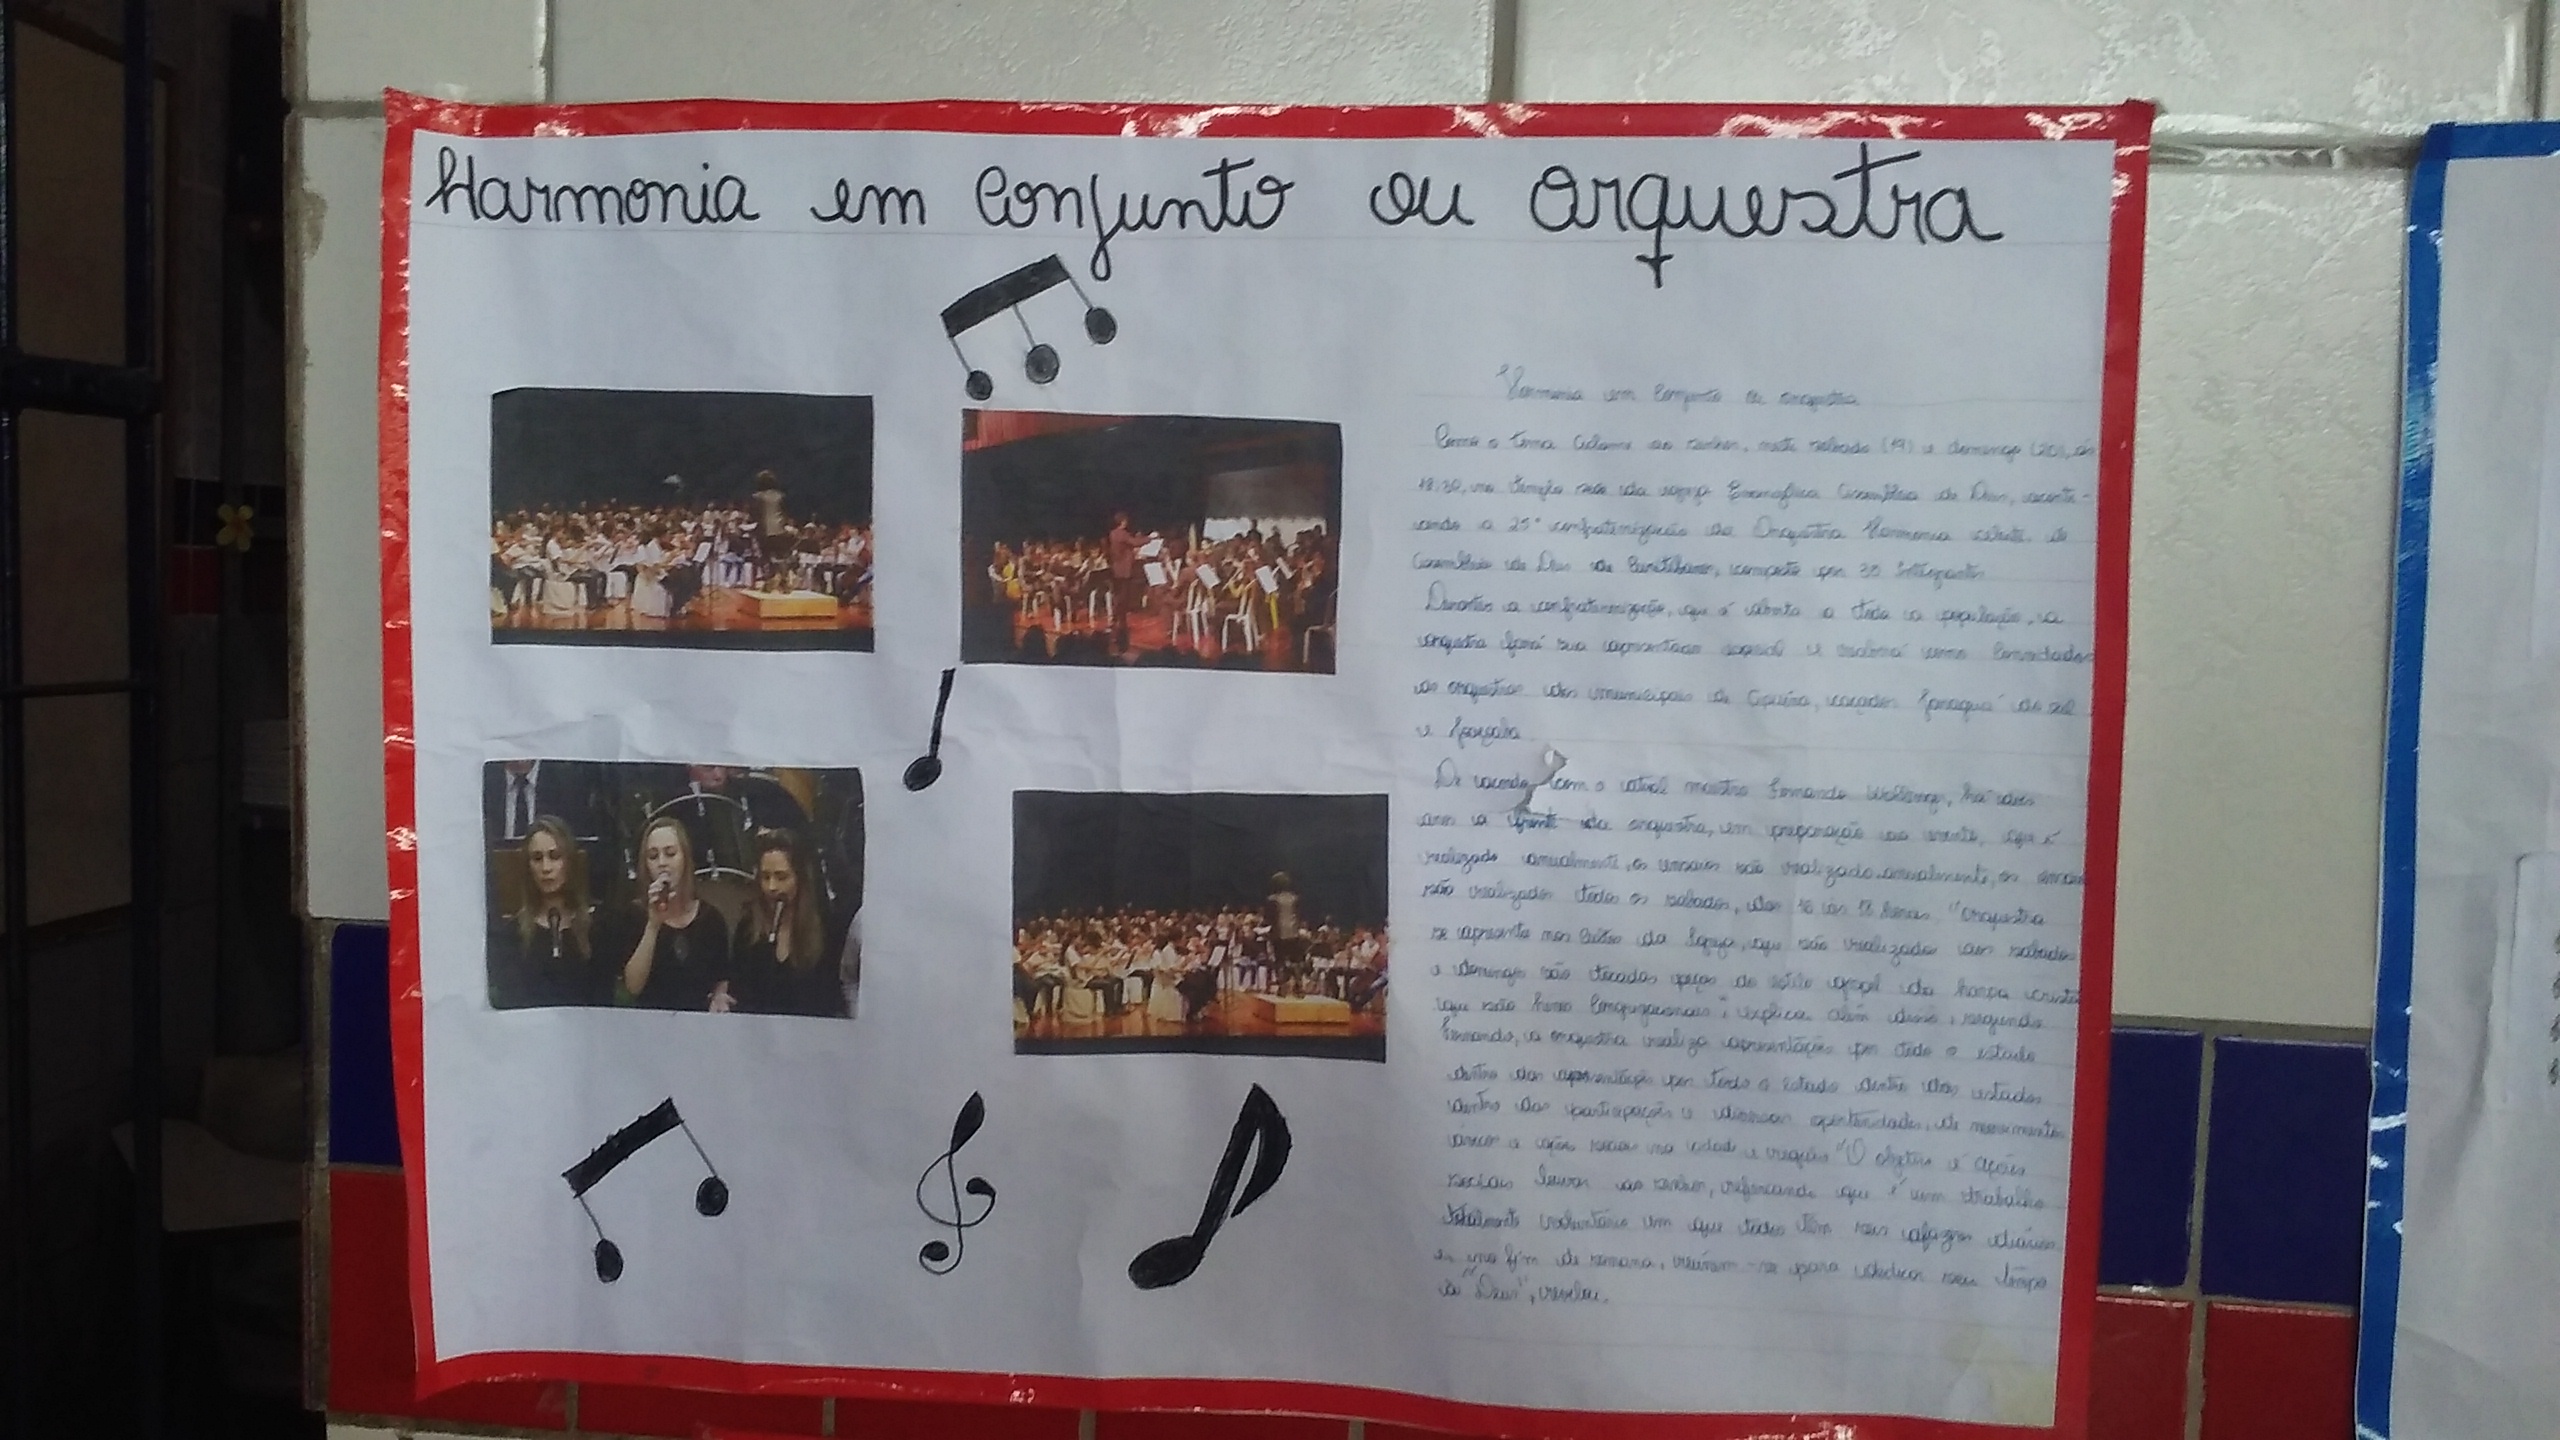 Harmonia em Conjunto ou orquestra
Harmonia em Conjunto ou orquestra
Como o tema Celome ao senhor, neste sabado (19) e domingo (20), ás
18:30, no templo sede da igreja Evangelica Assembleia de Deus, aconte-
cendo a 25° confraternização da Orquestra Harmonia celeste da
Assembleia de Deus de Curitibanos, composta por 30 Integrantes
Durantes a confraternização, que é aberta a toda a população, a
orquestra fará sua apresentaão especial e recberá como Convidados
as orquestras dos municipais de Capaína, caçador Jaraguá do sul
e
De acordo com o atual maestro Fernando há dois
anos a frente da orquestra, em preparação ao evento, que é
realizado anualmente, os ensaios são realizado anualmente, os ensaios
são realizados todos os sabados, das 16 às 18 horas, "Orquestra
se apresenta nos Cultos da Igreja, que são realizados aos sabados
e domingos são tocadas peças do estilo gospel da harpa cristã
que são hinos Congregacionais", explica além disso, segundo
Fernando, a orquestra realiza apresentações por todo o estado
dentro das apresentação por todo o estado dentre dos estados
dentro das participações e diversas oportunidades, de
e ações na cidade e região "O objetivo é ações
sociais louvar ao senhor, reforçando que é um trabalho
totalmente voluntário em que todos têm seus afazeres diários
e no fim de semana, reúnem-se para dedicar seu tempo
a "Deus", revelou.